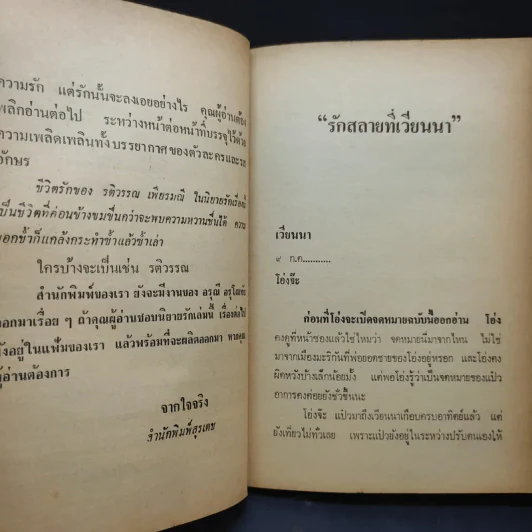 ความรัก แต่รักนั้นจะลงเอยอย่างไร คุณผู้อ่านต้อง
พลิกอ่านต่อไป ระหว่างหน้าต่อหน้าที่บรรจุไว้ด้วย
ความเพลิดเพลินทั้งบรรยากาศของตัวละครและรส
อักษร
ชีวิตรักของ รติวรรณ เพียรมณี ในนิยายรักเรื่องนี้
เป็นชีวิตที่ค่อนข้างขมขื่นกว่าจะพบความหวานชื่นได้ ความ
บอกช้ำก็แกล้งกระทำซ้ำแล้วซ้ำเล่า
ใครบ้างจะเป็นเช่น รติวรรณ
สำนักพิมพ์ของเรา ยังจะมีงานของ อรุณี อรุโณทัย
ออกมาเรื่อย ๆ ถ้าคุณผู้อ่านชอบนิยายรักเล่มนี้ เรื่องต่อไป
ยังอยู่ในแฟ้มของเรา แล้วพร้อมที่จะผลิตออกมา หากคุณ
ผู้อ่านต้องการ
จากใจจริง
สำนักพิมพ์สุรเดช
“รักสลายที่เวียนนา”
เวียนนา
๙ ก.ค...........
โอ่งจ๊ะ
ก่อนที่โอ่งจะเปิดจดหมายฉบับนี้ออกอ่าน โอ่ง
คงดูที่หน้าซองแล้วใช่ไหมว่า จดหมายนี้มาจากไหน ไม่ใช่
มาจากเมืองมะริกันที่พ่อยอดชายของโอ่งอยู่หรอก และโอ่งคง
ผิดหวังบ้างเล็กน้อยมั้ง แต่พอโอ่งรู้ว่าเป็นจดหมายของแป้ว
อาการคงค่อยยังชั่วขึ้นนะ
โอ่งจ๊ะ แป้วมาถึงเวียนนาเกือบครบอาทิตย์แล้ว แต่
ยังเที่ยวไม่ทั่วเลย เพราะแป้วยังอยู่ในระหว่างปรับตนเองให้